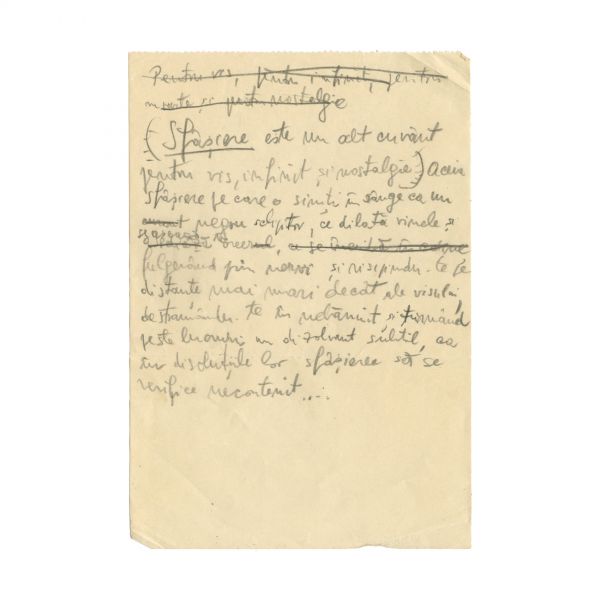 Pentru vis, pentru infinit, pentru
moarte, și pentru nostalgie
(Sfâșiere este un alt cuvânt
pentru vis, infinit și nostalgie) Aceia
sfâșiere pe care o simți în sânge ca un
negru sclipitor, ce dilată vinele și
creerul,
fulgerând prin nervi și risipindu-te pe
distanțe mai mari decât ale visului,
destrămându-te în nemărginit și turnând
peste lucruri un dizolvant subtil, ca
în disoluțiile lor sfâșierea să se
verifice necontenit...